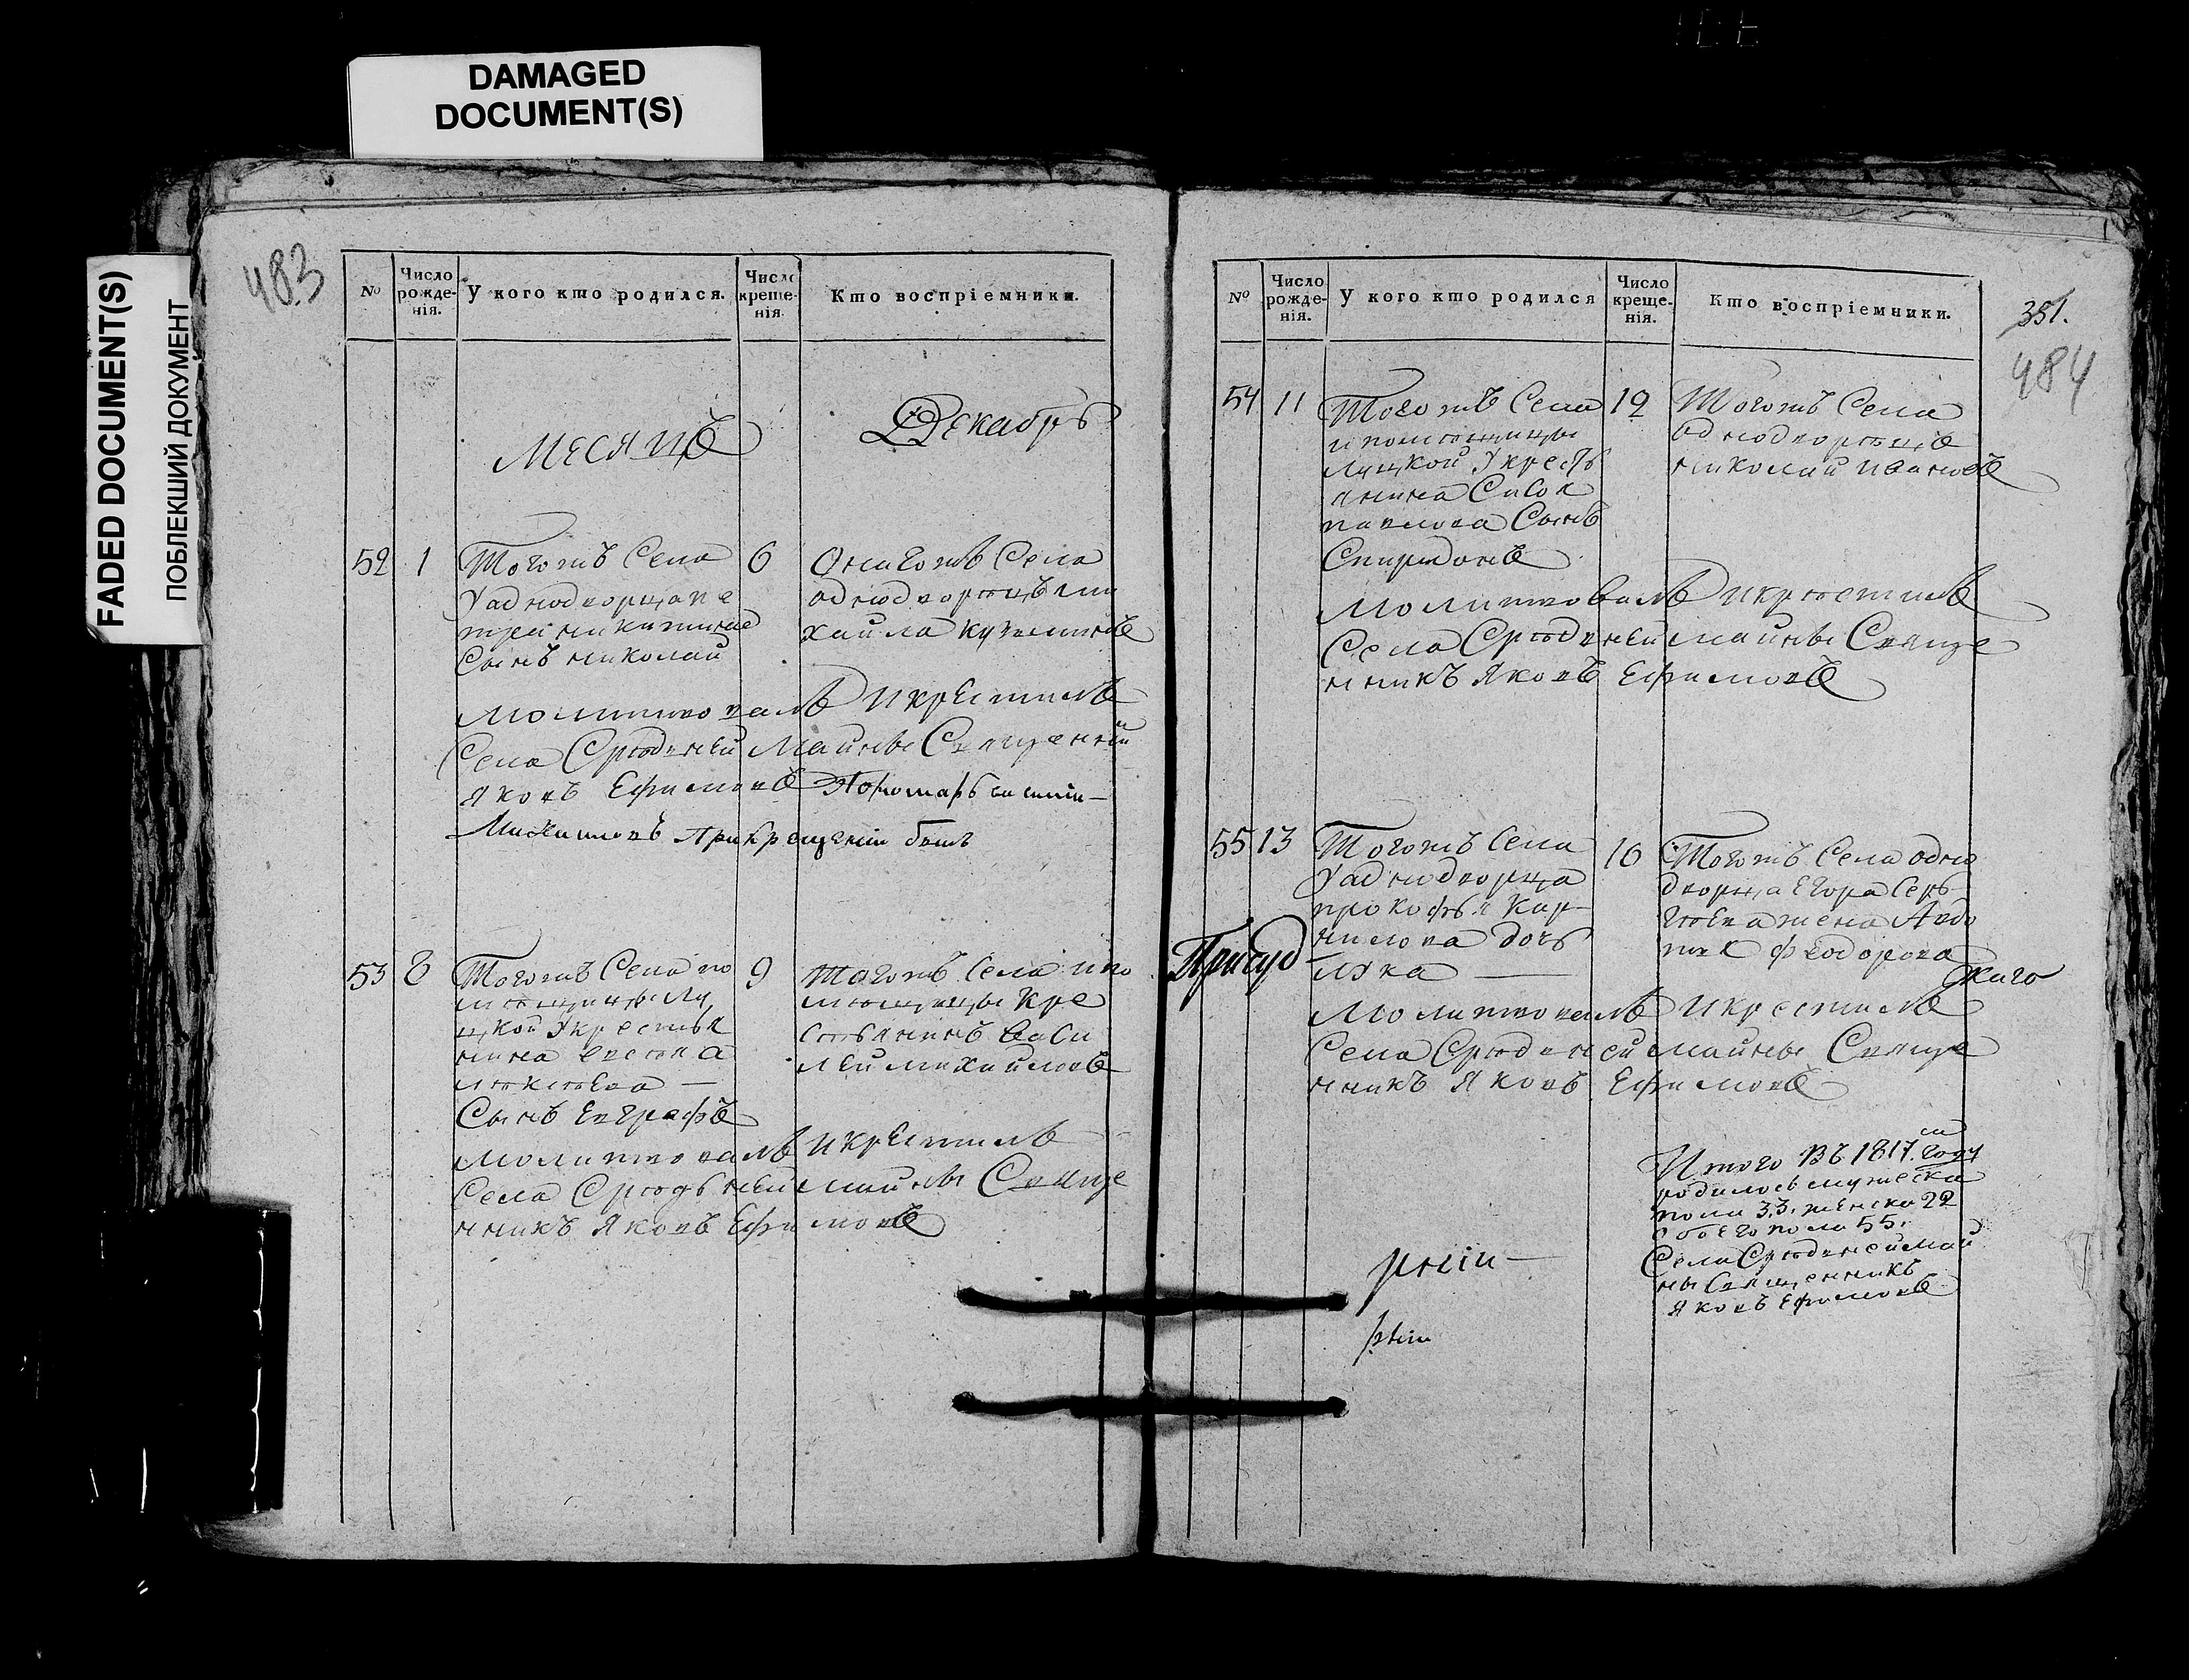 DAMAGED
DOCUMENT(S)
FADED DOCUMENT(S)
ПОБЛЕКШИЙ ДОКУМЕНТ
483
№
Число рожденія.
У кого кто родился.
Число крещенія.
Кто воспріемники.
Месяцъ Декабрь
52 1
Тогожъ Села
Уаднодворца пе
тра никитина
Сынъ николай
6
Онагожъ Села
аднодворецъ ми
хаила кузминъ
молитвовалъ и крестилъ
Села Средней Майны Священни
Яковъ Ефимовъ Пономарь
При крещеніи былъ
53 8
Тогожъ Села по
мещицы Лу
цкой Укрестья
нина
Сынъ Евграфъ
9
Тогожъ Села и по
мещицы Кре
стьянинъ Васи
лей михайловъ
молитвовалъ и крестилъ
Села Средьней майны Свяще
нникъ Яковъ Ефимовъ
№
Число рожденія.
У кого кто родился
Число крещенія.
Кто воспріемники.
351.
484
54 11
Тогожъ Села
и помещицы
Луцкой Укресть
янина Сисоя
павлова Сынъ
Спиридонъ
12
Тогожъ Села
аднодворецъ
николай ивановъ
молитвовалъ и крестилъ
Села Средней майны Свяще
нникъ Яковъ Ефимовъ
55 13
Тогожъ Села
Уаднодворца
прокофья Кар
нилова дочь
16
Тогожъ Села одно
дворца Егора Сер
геева жена Авдо
тья федорова
молитвовалъ и крестилъ
Села Средней майны Свяще
нникъ Яковъ Ефимовъ
Итого въ 1817 году
родилось мужеска
пола 33. женска 22
обоего пола 55.
Села Средней май
ны Священникъ
Яковъ Ефимовъ